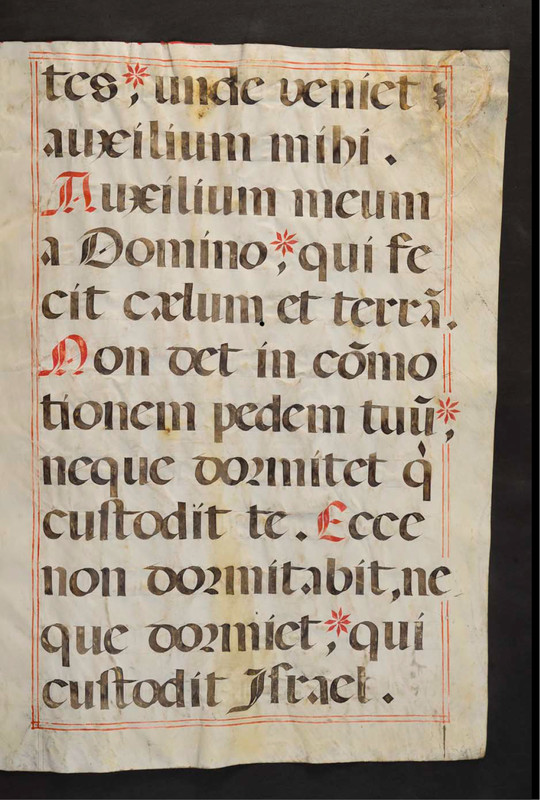 tes,* unde veniet
auxilium mihi.
Auxilium meum
a Domino,* qui fe
cit cælum et terrã.
Non det in cõmo
tionem pedem tuũ,*
neque dormitet q̇
custodit te. Ecce
non dormitabit, ne
que dormiet,* qui
custodit Israel.